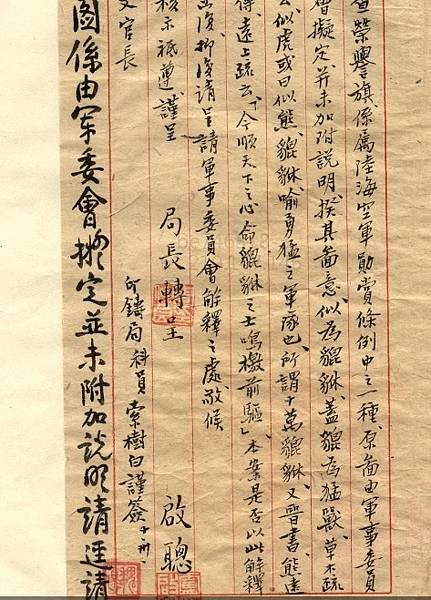 查榮譽旗係屬陸海空軍勛賞條例中之一種原圖由軍事委員
會擬定并未加附說明揆其圖意似為貔貅蓋貔為猛獸草木疏
云似虎或曰似熊貔貅喻勇猛之軍隊也所謂十萬貔貅又晉書熊遠
傳遠上疏云「今順天下之心命貔貅之士鳴檄前驅」本案是否以此解釋
復抑復請呈請軍事委員會解釋之處敬候
核示祗遵謹呈
局長轉呈
啟聰
文官長
印鑄局科員索樹白謹簽
圖係由軍委會擬定並未附加說明請逕請